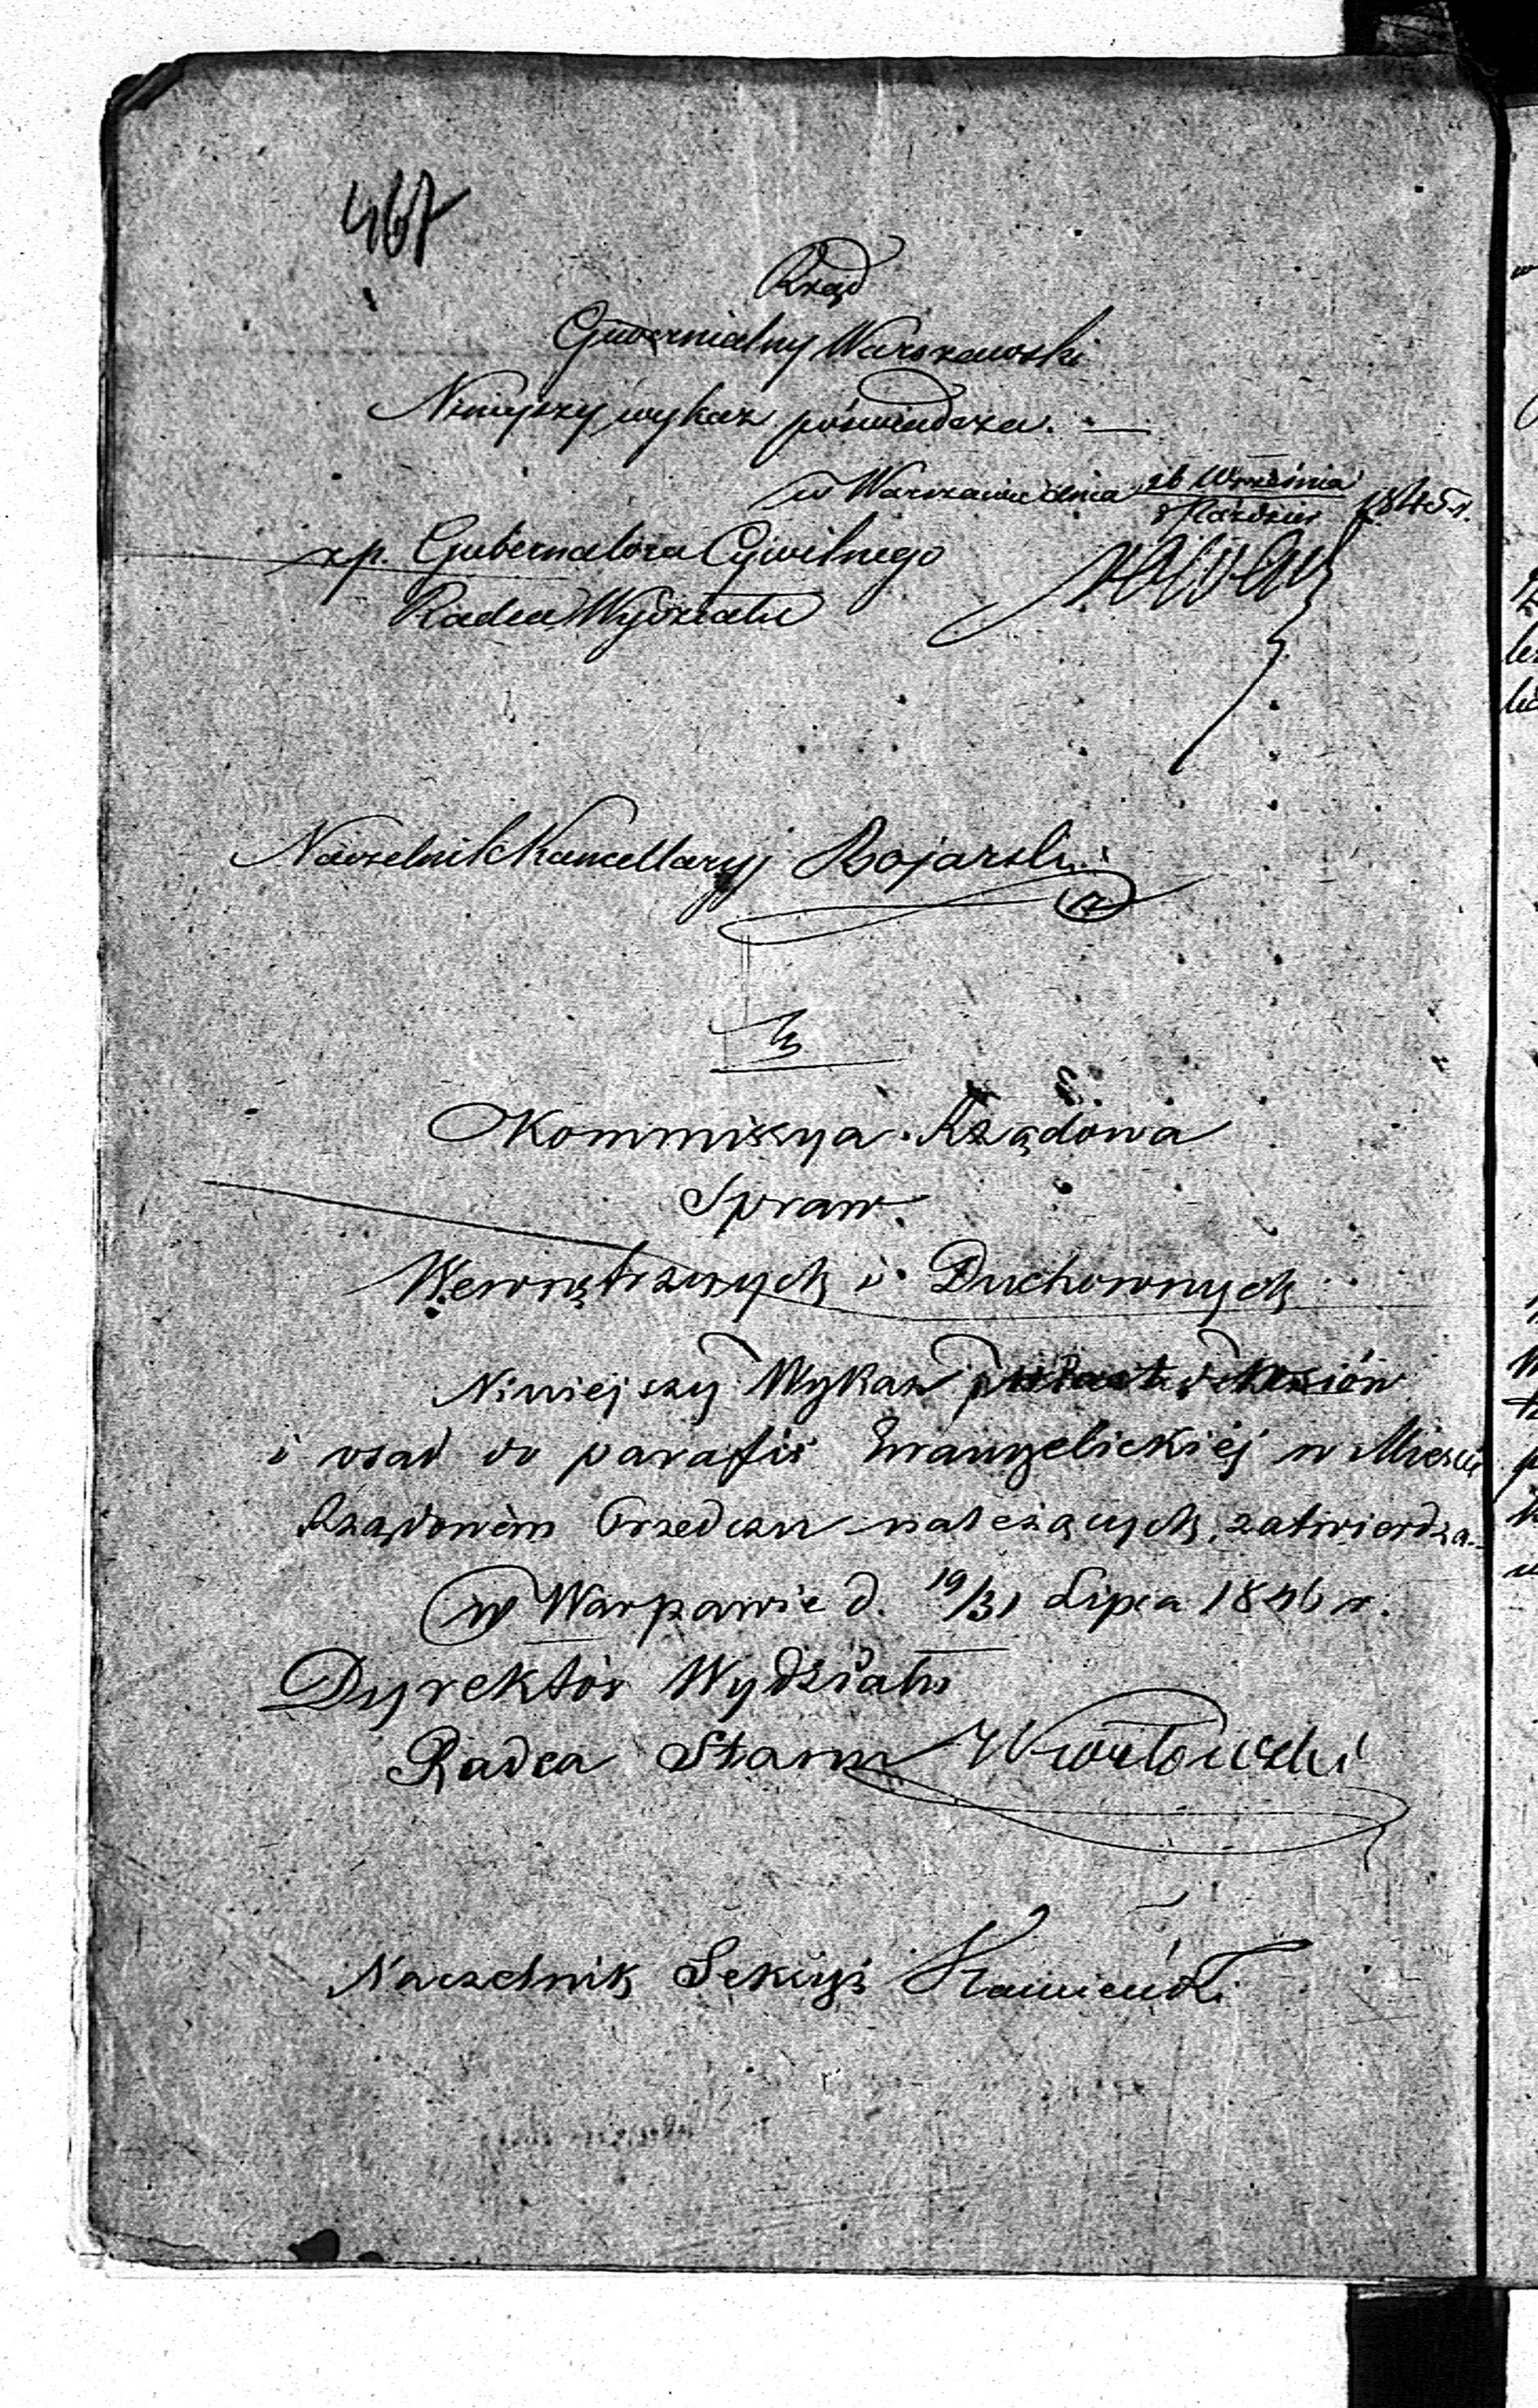 467
Rząd
Gubernialny Warszawski
Niniejszy wykaz poświadcza. —
w Warszawie dnia 26 Września / 8 Paździer 1845 r.
zp. Gubernatora Cywilnego
Radca Wydziału
Naczelnik Kancellaryj Bojarski
Kommissya Rządowa
Spraw
Wewnętrznych i Duchownych
Niniejszy Wykaz
i osad do parafii Ewangelickiéj w Mieście
Rządowém Przedczu należących, zatwierdza.
w Warszawie d. 19/31 Lipca 1846 r.
Dyrektór Wydziału
Radca Stanu
Naczelnik Sekcyi Kamieński